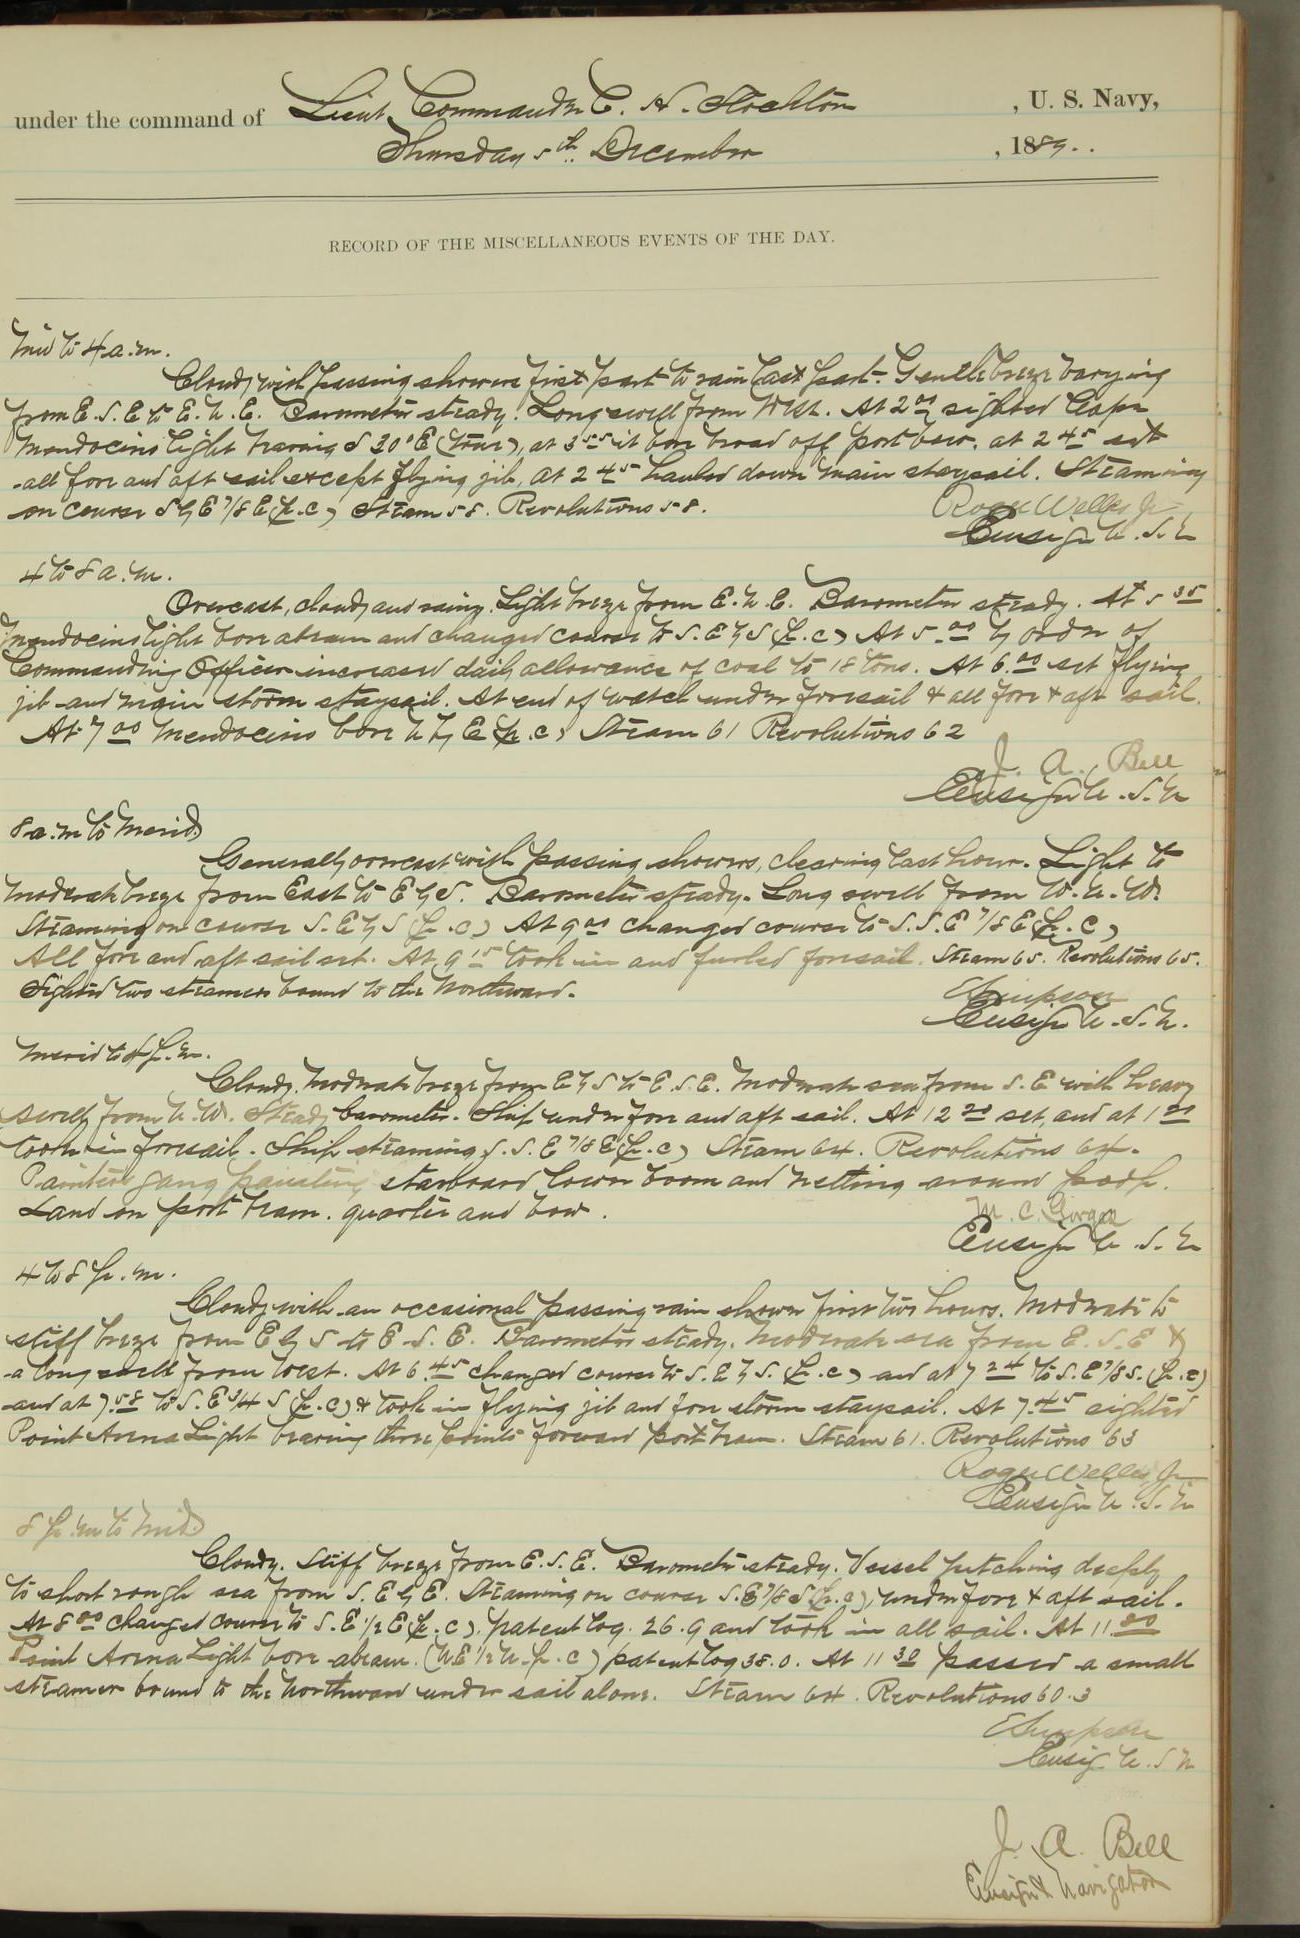 under the command of Lieut. Commander C. H. Stockton, U. S. Navy,
Thursday 5th December, 1889.
RECORD OF THE MISCELLANEOUS EVENTS OF THE DAY.
Mid to 4 a.m.
Cloudy with passing showers first part to rain last part. Gentle breeze varying
from E.S.E to E.N.E. Barometer steady. Long swell from West. At 2 00 sighted Cape
Mendocino light bearing S 30° E (true), at 3 55 it bore broad off port bow. at 2 45 set
all fore and aft sail except flying jib, at 2 45 hauled down main staysail. Steaming
on course S by E 7/8 E (p.c) Steam 58. Revolutions 58.
Roger Welles Jr
Ensign U.S.N
4 to 8 a.m.
Overcast, cloudy and rainy. Light breeze from E.N.E. Barometer steady. At 5 35
Mendocino light bore abeam and changed course to S.E by S (p.c) At 5 00 by order of
Commanding Officer increased daily allowance of coal to 18 tons. At 6 00 set flying
jib and main storm staysail. At end of watch under foresail & all fore & aft sail.
At 7 00 Mendocino bore N by E (p.c) Steam 61 Revolutions 62
J. A. Bell
Ensign U.S.N
8 a.m to Merid
Generally overcast with passing showers, clearing last hour. Light to
moderate breeze from East to E by S. Barometer steady. Long swell from W.N.W.
Steaming on course S.E by S (p.c) At 9 00 changed course to S.S.E 7/8 E (p.c)
All fore and aft sail set. At 9 15 took in and furled foresail. Steam 65. Revolutions 65.
Sighted two steamers bound to the Northward.
E Simpson
Ensign U.S.N.
Merid to 4 p.m.
Cloudy. Moderate breeze from E by S to E.S.E. Moderate sea from S.E with heavy
swell from N.W. Steady barometer. Ship under fore and aft sail. At 12 20 set, and at 1 20
took in foresail. Ship steaming S.S.E 7/8 E (p.c) Steam 64. Revolutions 64.
Painters gang painting starboard lower boom and netting around poop.
Land on port beam, quarter and bow.
M. C. Gorgas
Ensign U.S.N
4 to 8 p.m.
Cloudy with an occasional passing rain shower first two hours. Moderate to
stiff breeze from E by S to E.S.E. Barometer steady. Moderate sea from E.S.E &
a long swell from West. At 6 45 changed course to S.E by S. (p.c) and at 7 24 to S.E 7/8 S. (p.c)
and at 7 58 to S.E 3/4 S (p.c) & took in flying jib and fore storm staysail. At 7 45 sighted
Point Arena Light bearing three points forward port beam. Steam 61. Revolutions 63
Roger Welles, Jr
Ensign U.S.N
8 p.m to Mid
Cloudy. Stiff breeze from E.S.E. Barometer steady. Vessel pitching deeply
to short rough sea from S.E by E. Steaming on course S.E 7/8 S (p.c), under fore & aft sail.
At 8 00 changed course to S.E 1/2 E (p.c). patent log 26.9 and took in all sail. At 11 20
Point Arena Light bore abeam. (NE 1/2 N. p.c) patent log 38.0. At 11 30 passed a small
steamer bound to the Northward under sail alone. Steam 64. Revolutions 60.3
E Simpson
Ensign U.S.N
J. A. Bell
Ensign & Navigator